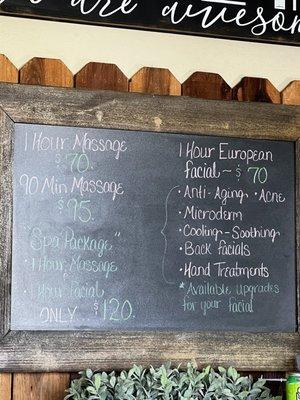 are awesome
1 Hour Massage
$70.
90 Min Massage
$95.
"Spa Package"
1 Hour Massage
1 Hour Facial
ONLY $120.
1 Hour European
Facial ~ $70
· Anti-Aging · Acne
· Microderm
· Cooling-Soothing
· Back Facials
· Hand Treatments
*Available Upgrades
for your facial